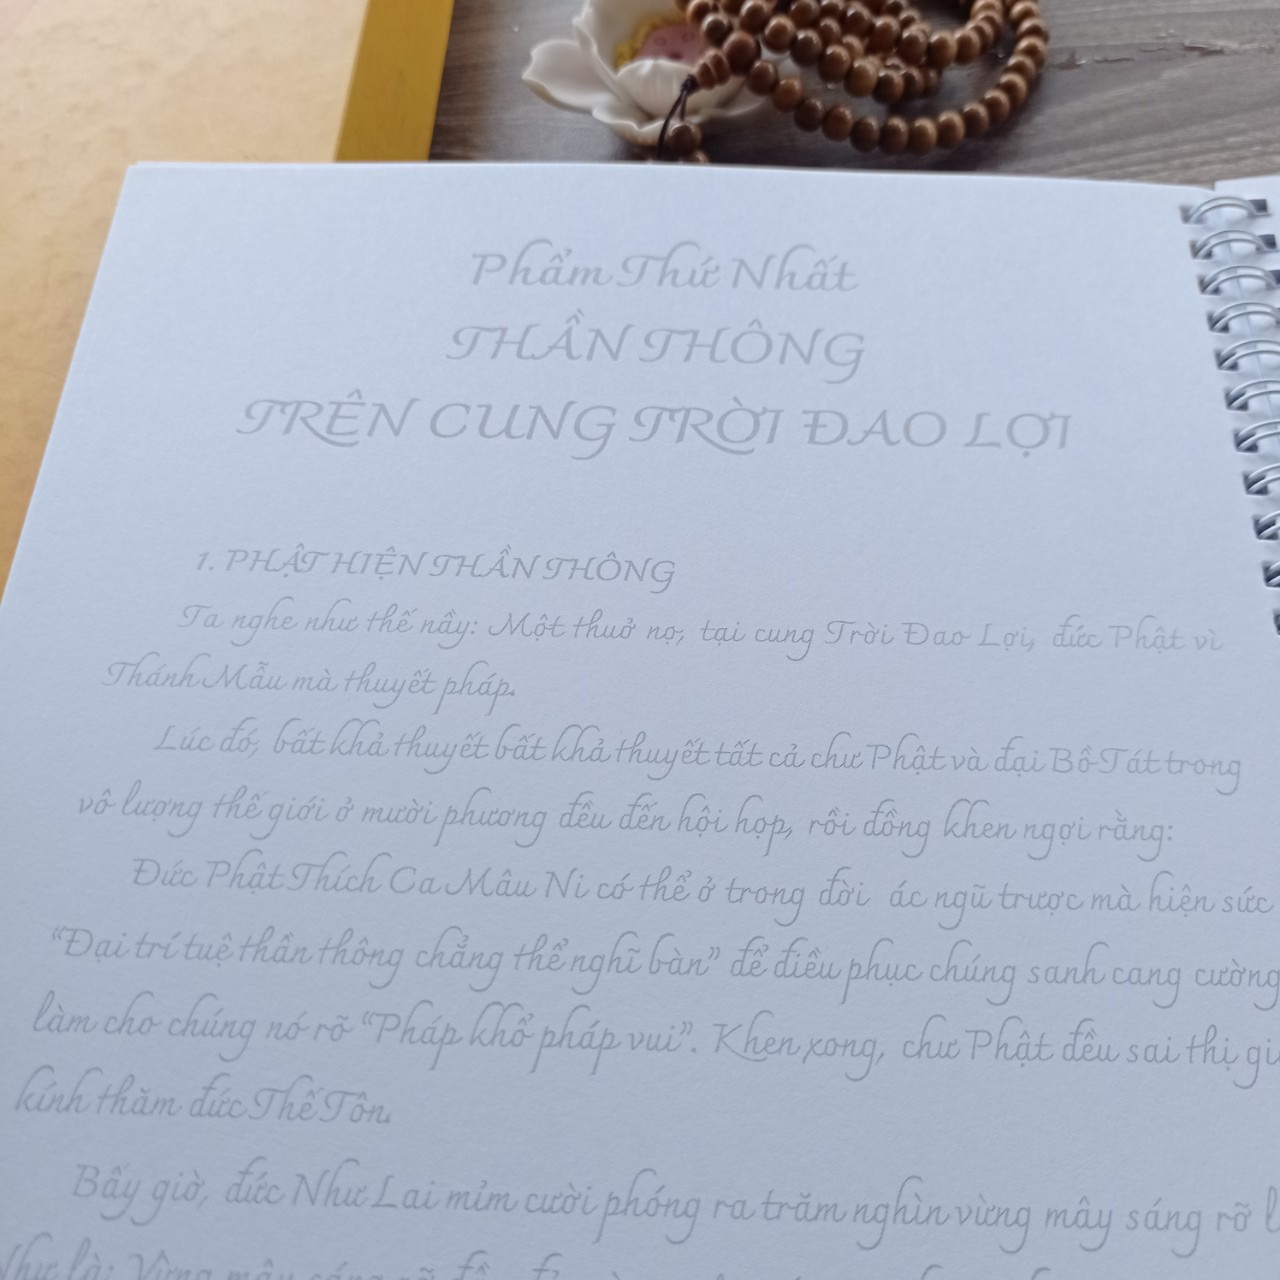 Phẩm Thứ Nhất
THẦN THÔNG
TRÊN CUNG TRỜI ĐAO LỢI
1. PHẬT HIỆN THẦN THÔNG
Ta nghe như thế nầy: Một thuở nọ, tại cung Trời Đao Lợi, đức Phật vì
Thánh Mẫu mà thuyết pháp.
Lúc đó, bất khả thuyết bất khả thuyết tất cả chư Phật và đại Bồ Tát trong
vô lượng thế giới ở mười phương đều đến hội họp, rồi đồng khen ngợi rằng:
Đức Phật Thích Ca Mâu Ni có thể ở trong đời ác ngũ trược mà hiện sức
“Đại trí tuệ thần thông chẳng thể nghĩ bàn” để điều phục chúng sanh cang cường
làm cho chúng nó rõ “Pháp khổ pháp vui”. Khen xong, chư Phật đều sai thị
kính thăm đức Thế Tôn.
Bấy giờ, đức Như Lai mỉm cười phóng ra trăm nghìn vừng mây sáng rỡ
Như là: Vừng mây sáng rỡ